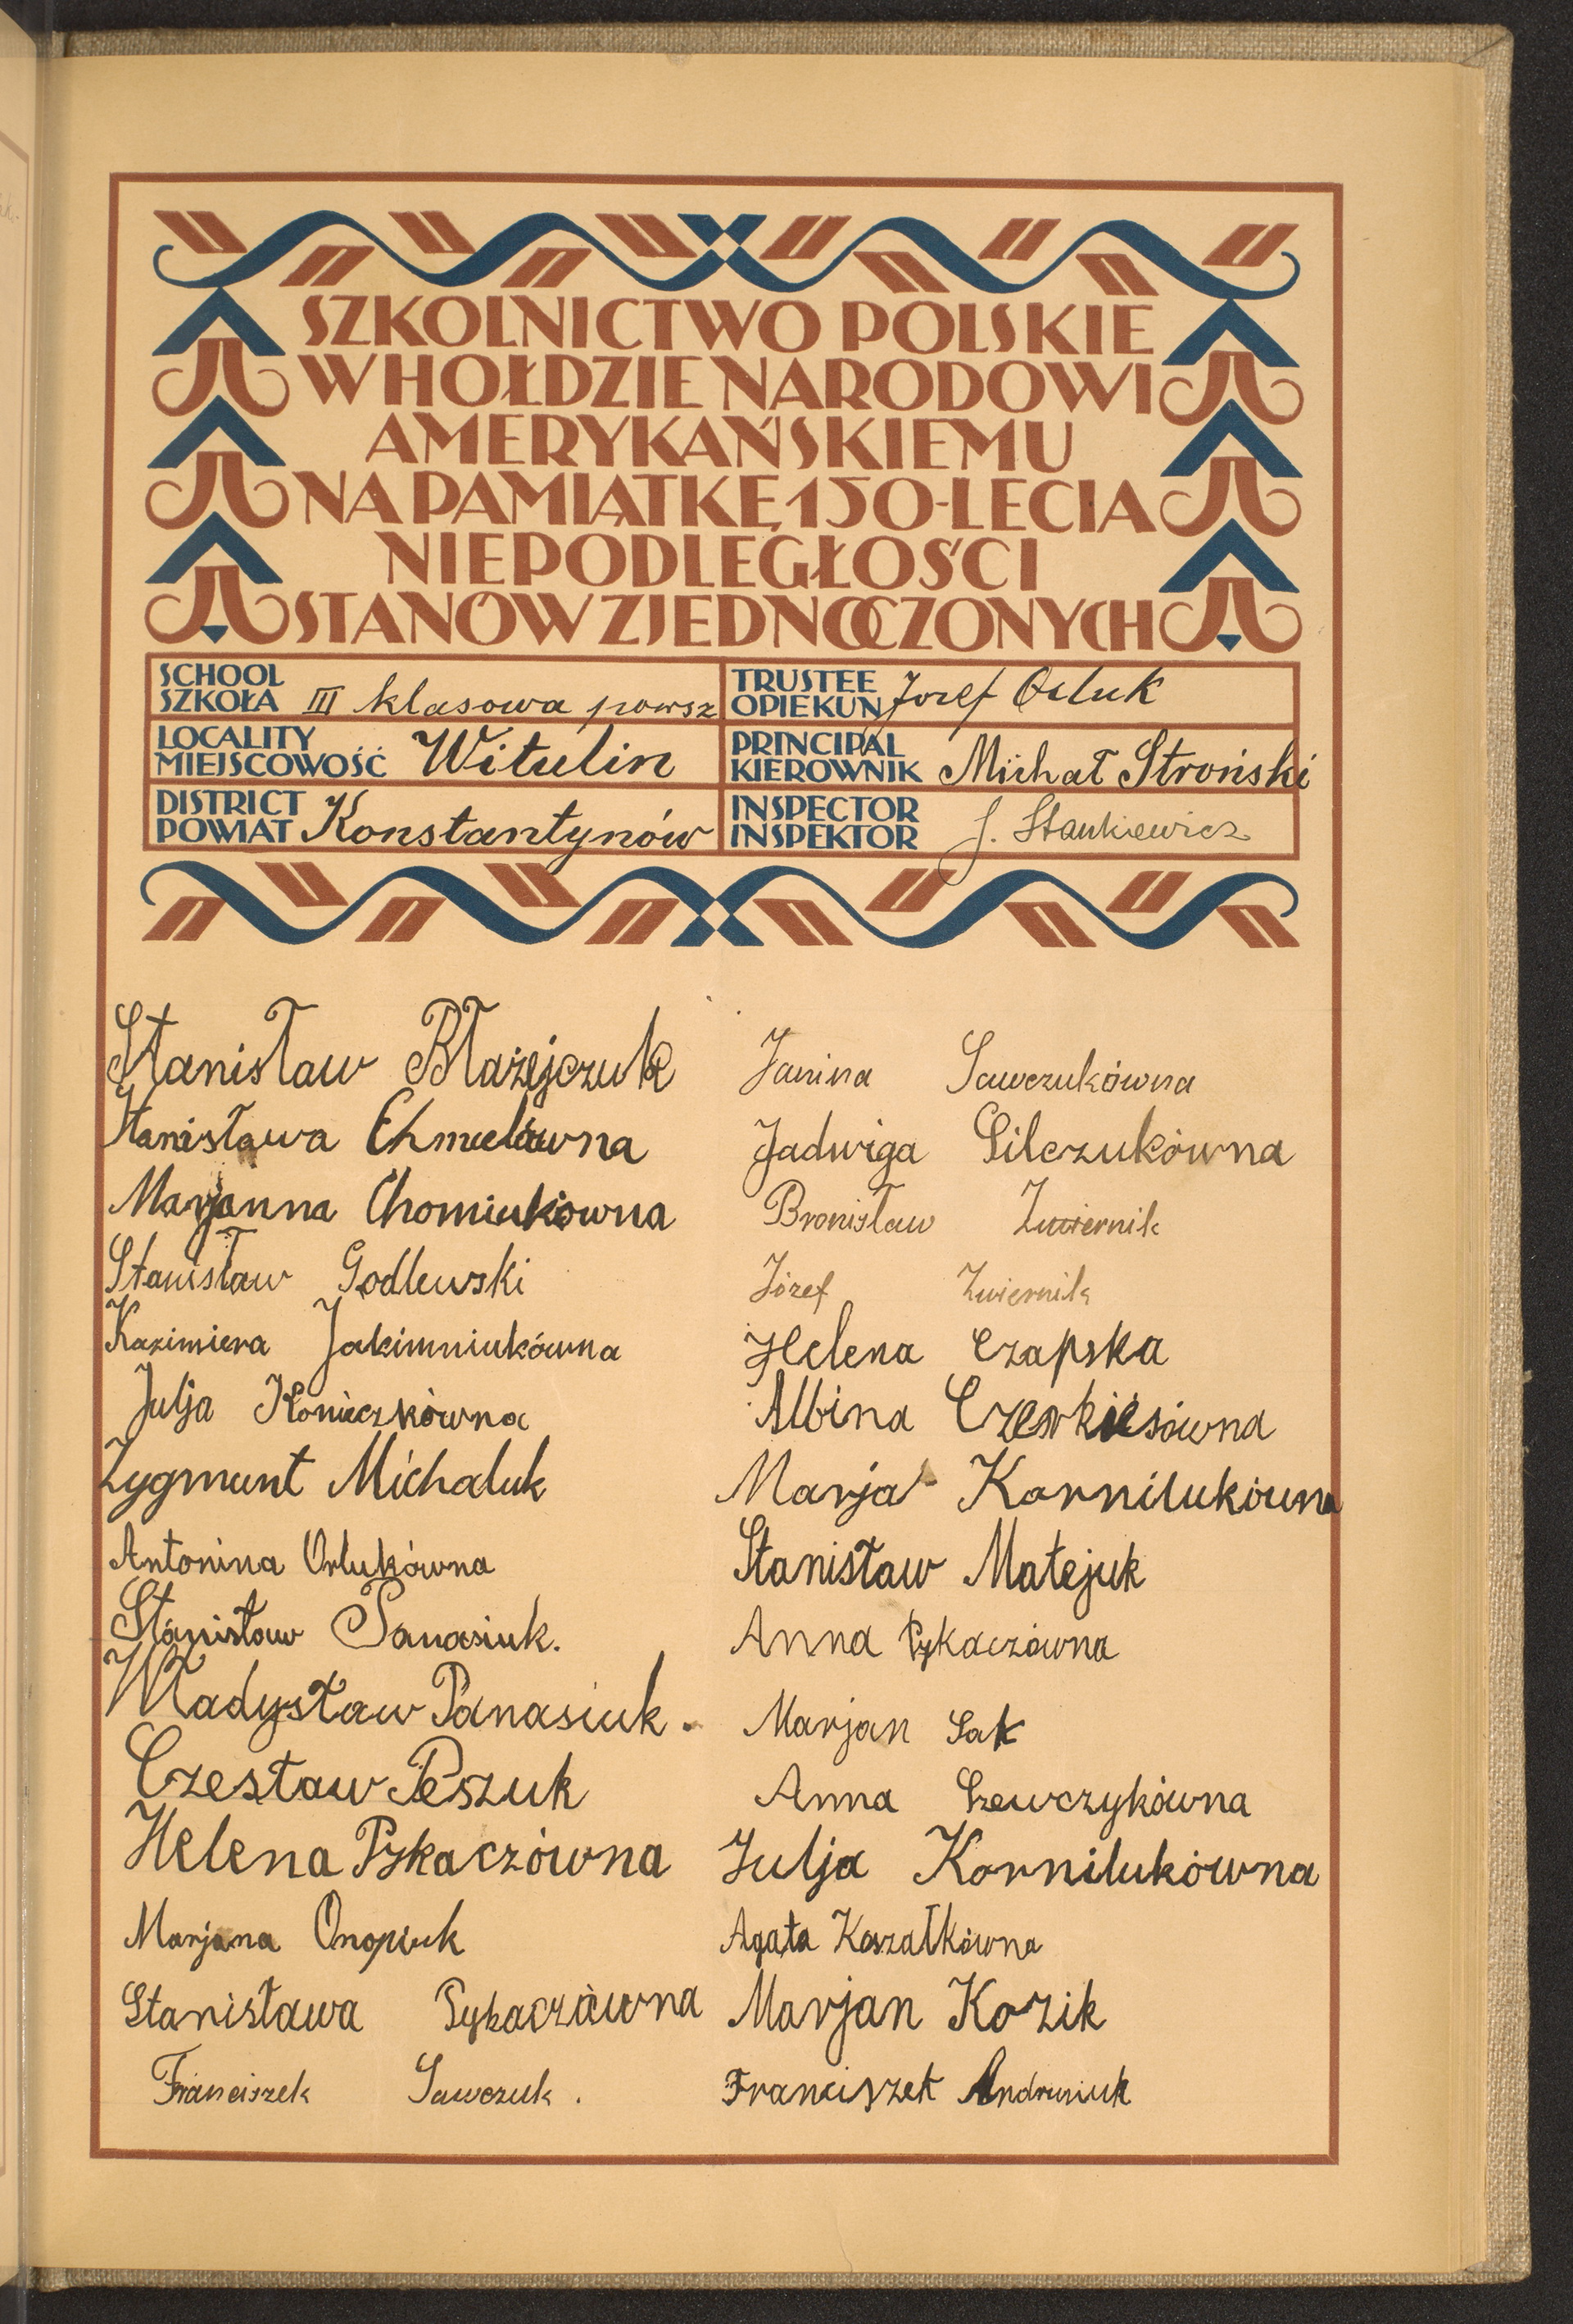 SZKOLNICTWO POLSKIE
W HOŁDZIE NARODOWI
AMERYKAŃSKIEMU
NA PAMIĄTKĘ 150-LECIA
NIEPODLEGŁOŚCI
STANÓW ZJEDNOCZONYCH
SCHOOL
SZKOŁA III klasowa powsz
LOCALITY
MIEJSCOWOŚĆ Witulin
DISTRICT
POWIAT Konstantynów
TRUSTEE
OPIEKUN Józef
PRINCIPAL
KIEROWNIK Michał Stroński
INSPECTOR
INSPEKTOR J. Stankiewicz
Stanisław Błażejczuk
Stanisława Chmielówna
Marjanna Chomiukówna
Stanisław Godlewski
Kazimiera Jakimniukówna
Julja Konieczkówna
Zygmunt Michaluk
Antonina Orlukówna
Stanisław Panasiuk.
Władysław Panasiuk.
Czesław Peszuk
Helena Pykaczówna
Marjana Onopiuk
Stanisława Pykaczówna
Franciszek Sawczuk.
Janina Sawczukówna
Jadwiga Silczukówna
Bronisław Zwiernik
Józef Zwiernik
Helena Czapska
Albina Czerkiesówna
Marja Kornilukówna
Stanisław Matejuk
Anna Pykaczówna
Marjan Sak
Anna Szewczykówna
Julja Kornilukówna
Agata Koszałkówna
Marjan Kozik
Franciszek Andrusiuk